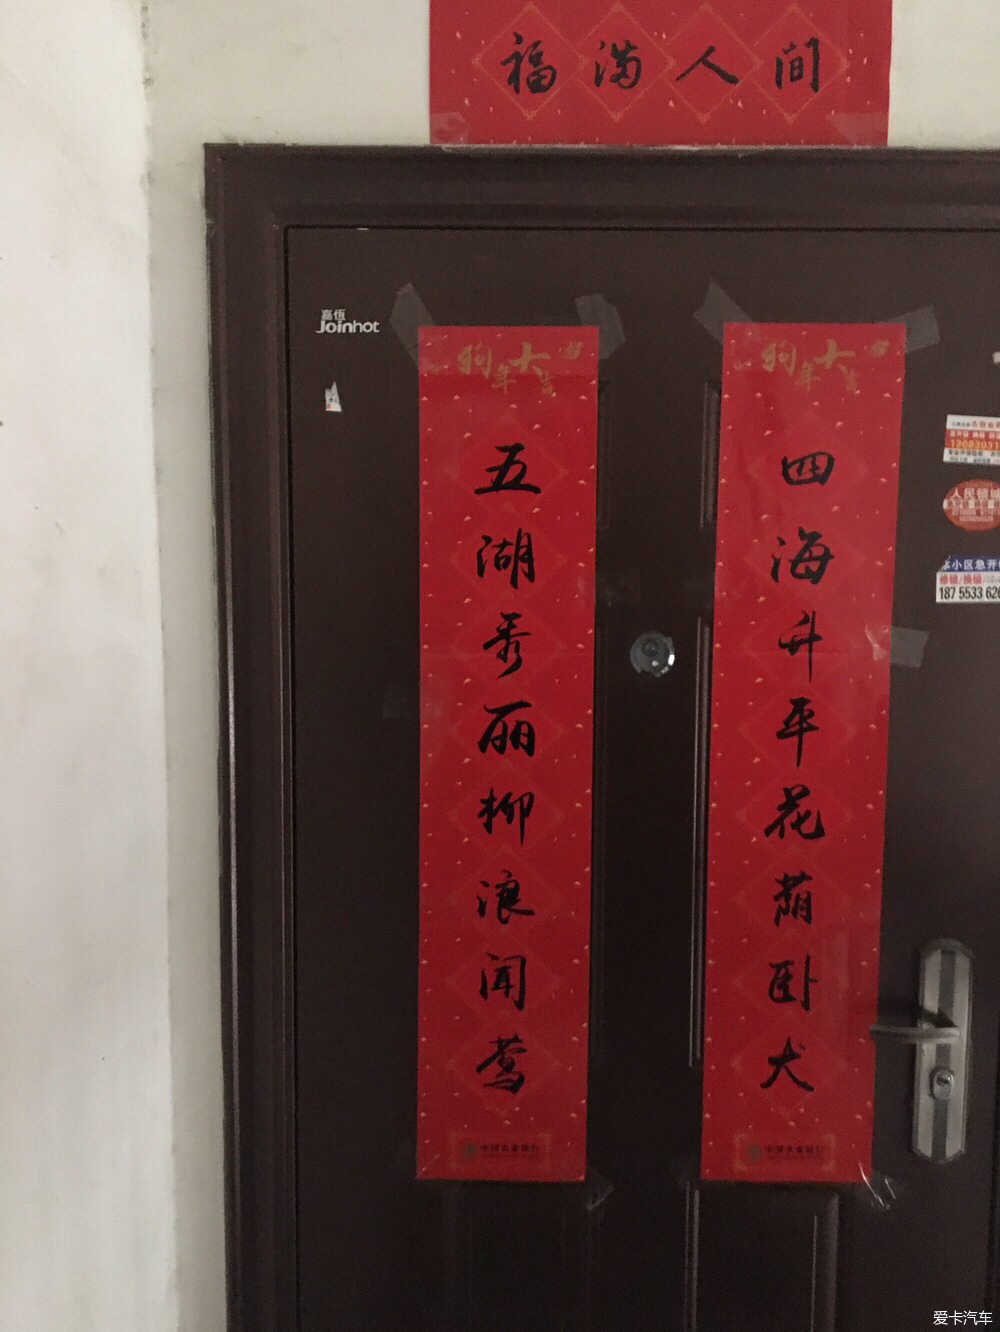 福满人间
嘉恆
Joinhot
狗年大吉
四海升平花荫卧犬
中国农业银行
狗年大吉
五湖秀丽柳浪闻莺
中国农业银行
人民锁
本小区急开
修锁/换锁
18755533626
爱卡汽车